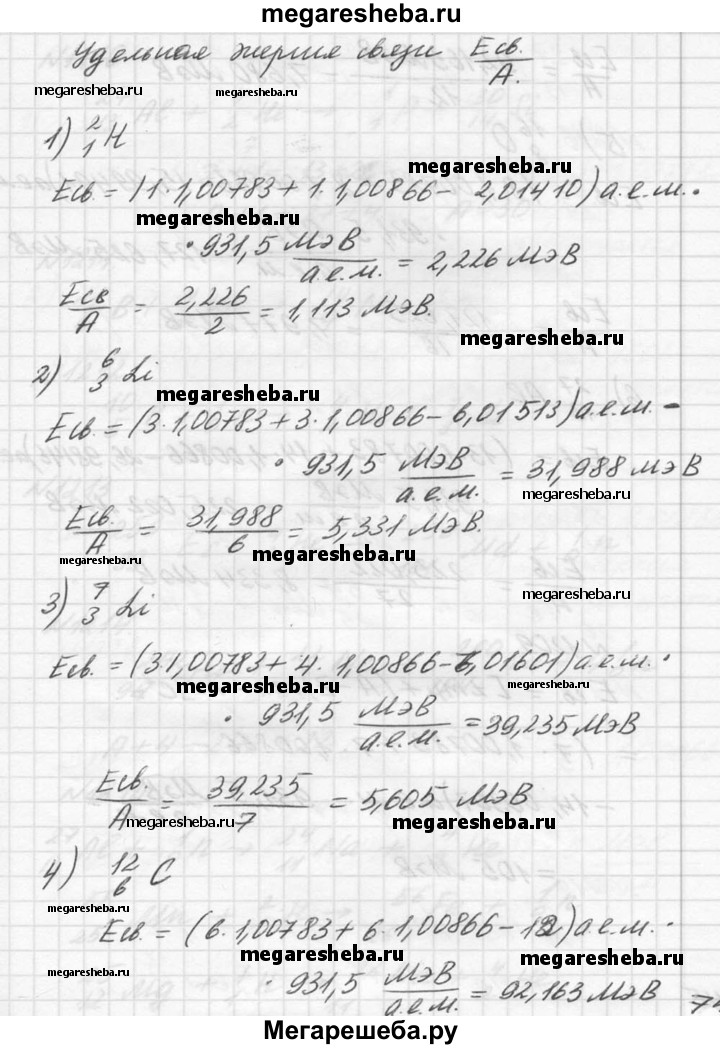 megaresheba.ru
Удельная энергия связи Eсв./A.
megaresheba.ru megaresheba.ru
1) ²₁H
megaresheba.ru
Eсв. = (1·1,00783 + 1·1,00866 - 2,01410) а.е.м. ·
megaresheba.ru
· 931,5 МэВ/а.е.м. = 2,226 МэВ
Eсв/A = 2,226/2 = 1,113 МэВ.
megaresheba.ru
2) ⁶₃Li
megaresheba.ru
Eсв. = (3·1,00783 + 3·1,00866 - 6,01513) а.е.м. -
· 931,5 МэВ/а.е.м. = 31,988 МэВ
megaresheba.ru
Eсв./A = 31,988/6 = 5,331 МэВ.
megaresheba.ru megaresheba.ru
3) ⁷₃Li
megaresheba.ru
Eсв. = (3·1,00783 + 4·1,00866 - 7,01601) а.е.м. ·
megaresheba.ru megaresheba.ru
· 931,5 МэВ/а.е.м. = 39,235 МэВ
megaresheba.ru
Eсв./A = 39,235/7 = 5,605 МэВ
megaresheba.ru megaresheba.ru
4) ¹²₆C
megaresheba.ru
Eсв. = (6·1,00783 + 6·1,00866 - 12) а.е.м. ·
megaresheba.ru megaresheba.ru
· 931,5 МэВ/а.е.м. = 92,163 МэВ
Мегарешеба.ру